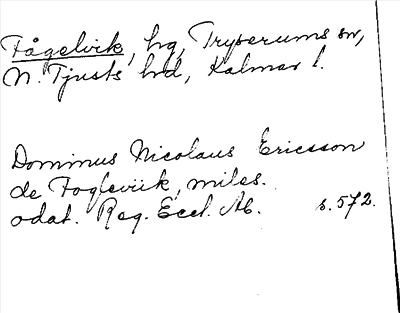 Fågelvik, hg, Tryserums sn,
N. Tjusts hd, Kalmar l.
Dominus Nicolaus Ericsson
de Fogleviik, miles.
odat. Reg. Eccl. Ab. s. 572.